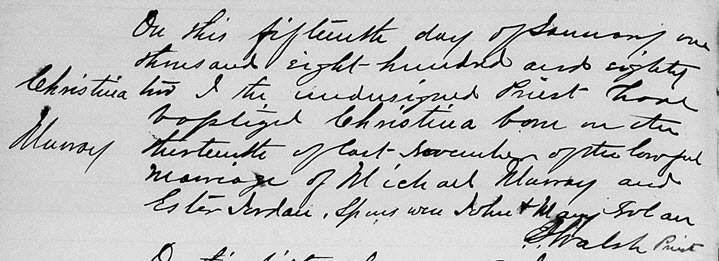 On this fifteenth day of January one
thousand eight hundred and eighty
Christina two I the undersigned Priest have
baptized Christina born on the
Murray thirteenth of last November of the lawful
marriage of Michael Murray and
Ester Jordan. Spons were John & Mary
E. Walsh Priest